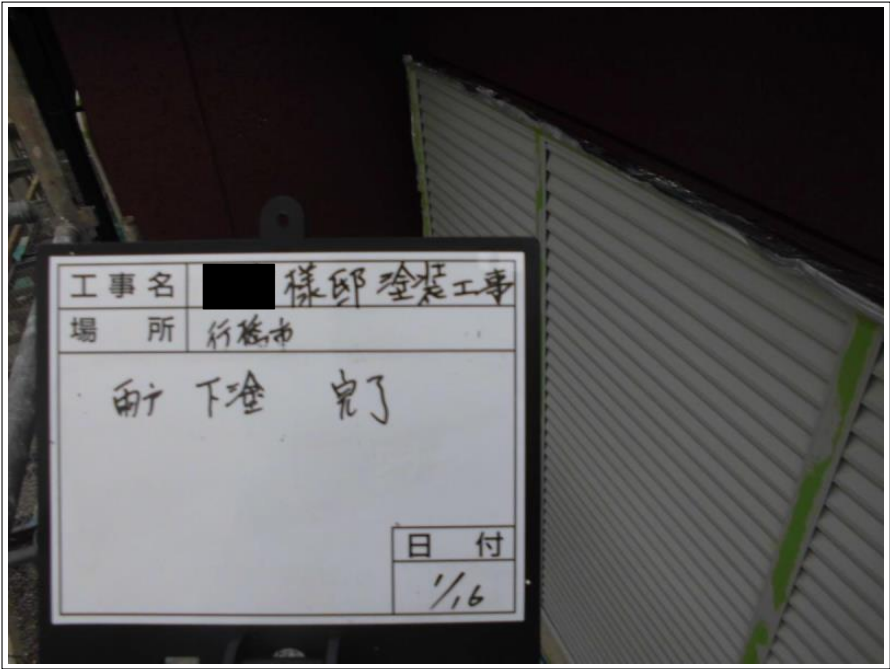 工事名 様邸 塗装工事
場所 行橋市
雨戸 下塗 完了
日付
1/16